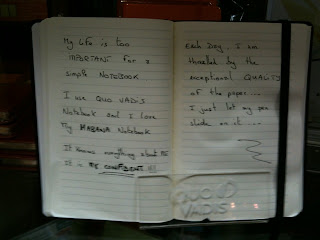 My Life is too
IMPORTANT for a
simple NOTEBOOK.
I use QUO VADIS
Notebook and I love
My HABANA Notebook
It knows everything about ME
It is MY CONFIDENT !!!
Each Day, I am
thrilled by the
exceptional QUALITY
of the paper...
I just let my pen
slide on it...
QUO
VADIS